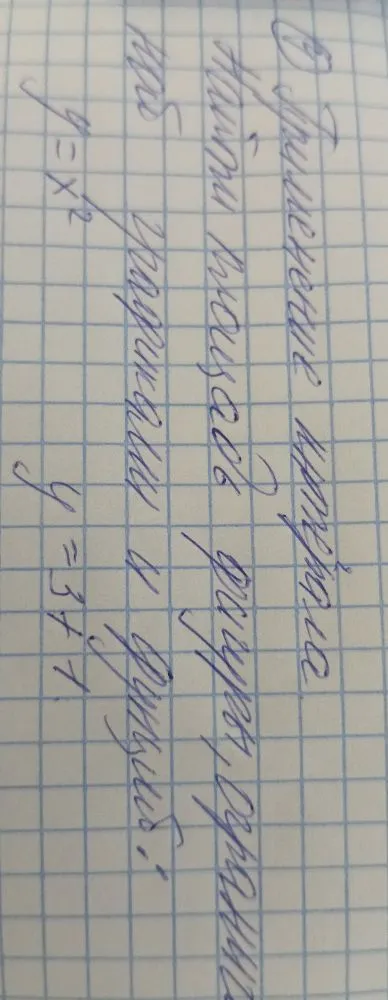 ① Применение интеграла
Найти площадь фигуры, огранич
ной графиками и функций:
y = x² y = 3 + 1